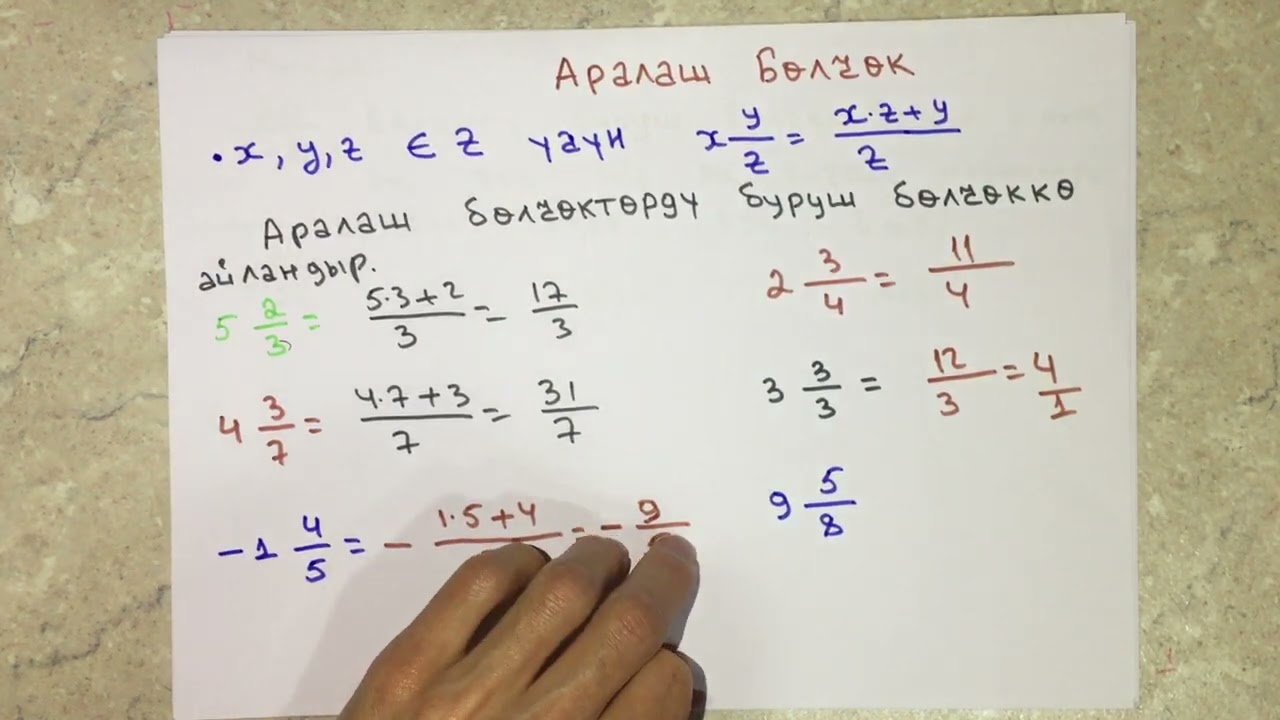 Аралаш Бөлчөк
• x, y, z ∈ Z үчүн x y/z = (x·z+y)/z
Аралаш бөлчөктөрдү буруш бөлчөккө
айландыр.
5 2/3 = (5·3+2)/3 = 17/3
4 3/7 = (4·7+3)/7 = 31/7
-1 4/5 = - (1·5+4)/ = - 9/
2 3/4 = 11/4
3 3/3 = 12/3 = 4/1
9 5/8